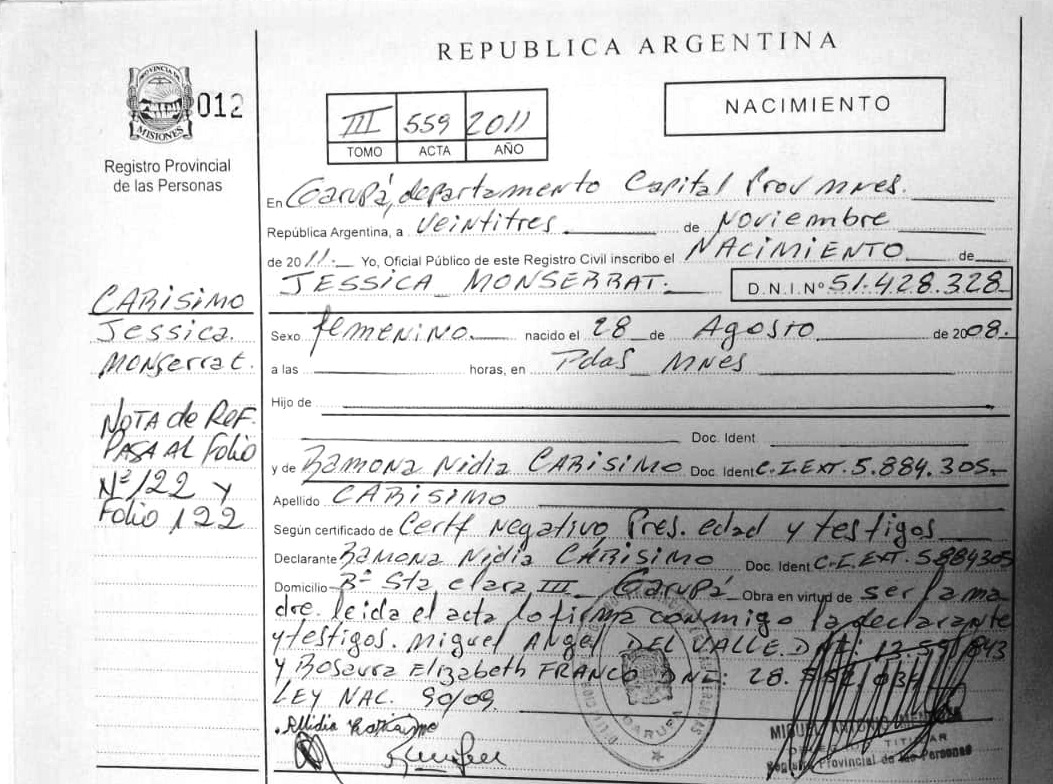 REPUBLICA ARGENTINA
PROVINCIA DE
MISIONES
012
Registro Provincial
de las Personas
III 559 2011
TOMO ACTA AÑO
NACIMIENTO
En Garupá, departamento Capital Prov Mnes.
República Argentina, a veintitres de Noviembre
de 2011. Yo, Oficial Público de este Registro Civil inscribo el NACIMIENTO de
JESSICA MONSERRAT. D.N.I.Nº 51.428.328
CARISIMO
Jessica.
Monserrat.
Sexo femenino. nacido el 28 de Agosto de 2008.
a las horas, en Pdas Mnes
Hijo de
Doc. Ident
y de Ramona Nidia CARISIMO Doc. Ident C.I.EXT. 5.884.305
Apellido CARISIMO
NOTA de REF.
PASA AL Folio
Nº 122 y
Folio 122
Según certificado de Certf Negativo, Pres. edad y testigos
Declarante Ramona Nidia CARISIMO Doc. Ident C.I.EXT. 5884305
Domicilio Bº Sta clara III Garupá Obra en virtud de ser la ma
dre. leida el acta lo firma conmigo la declarante
y testigos. Miguel Angel DEL VALLE. DNI:
y Rosaura Elizabeth FRANCO DNI: 28.
LEY NAC. 90/09.
GARUPA
MIGUEL ANTONIO
TITULAR
Registro Provincial de las Personas